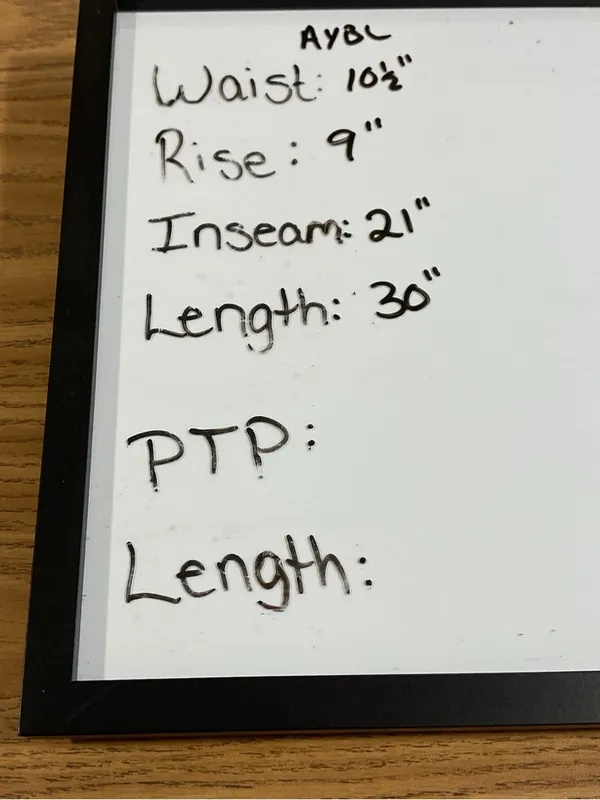 AYBL
Waist: 10½"
Rise: 9"
Inseam: 21"
Length: 30"
PTP:
Length: